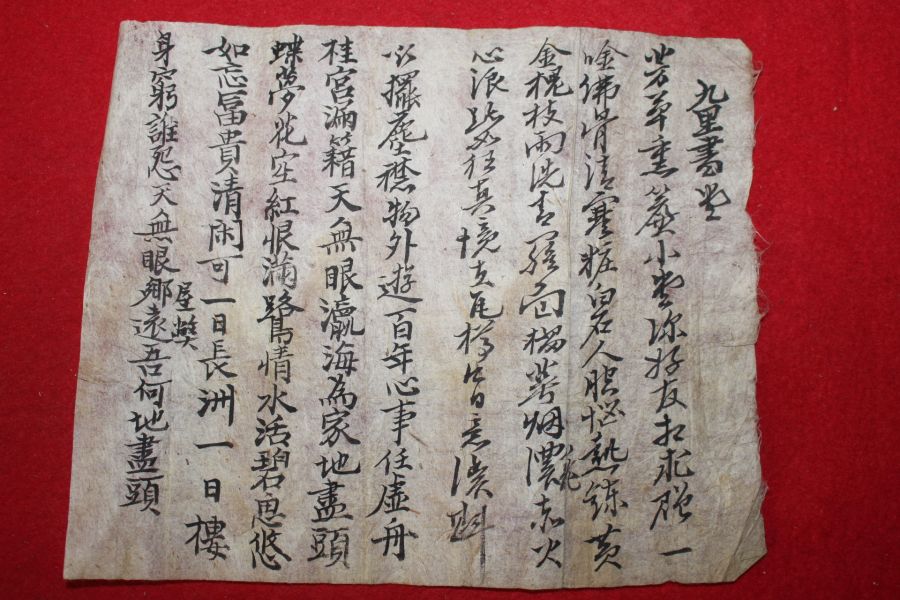 九里書堂
芳草重簾小堂深好友相求一
唫佛骨清寒粧白石人腰惱熱鎔黃
金槐枝雨洗青面榴萼烟濃赤火
心浪跡狂真境立瓦樽意淡斟
以擺塵襟物外遊百年心事任虛舟
桂宮漏籍天無眼瀛海為家地盡頭
蝶夢花紅恨滿鷺情水活碧思悠
如忘富貴清閑可一日長洲一日樓
身窮誰怨天無眼鄉遠吾何地盡頭